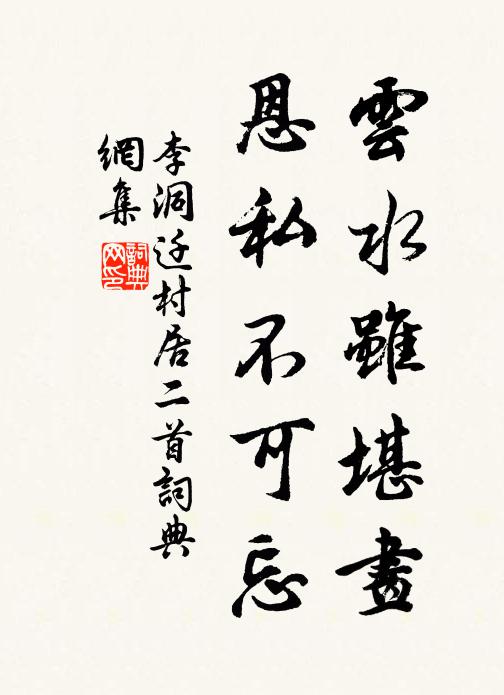 雲水雖堪畫
恩私不可忘
李洞迁村居二首詞典
網集
詞典
网印